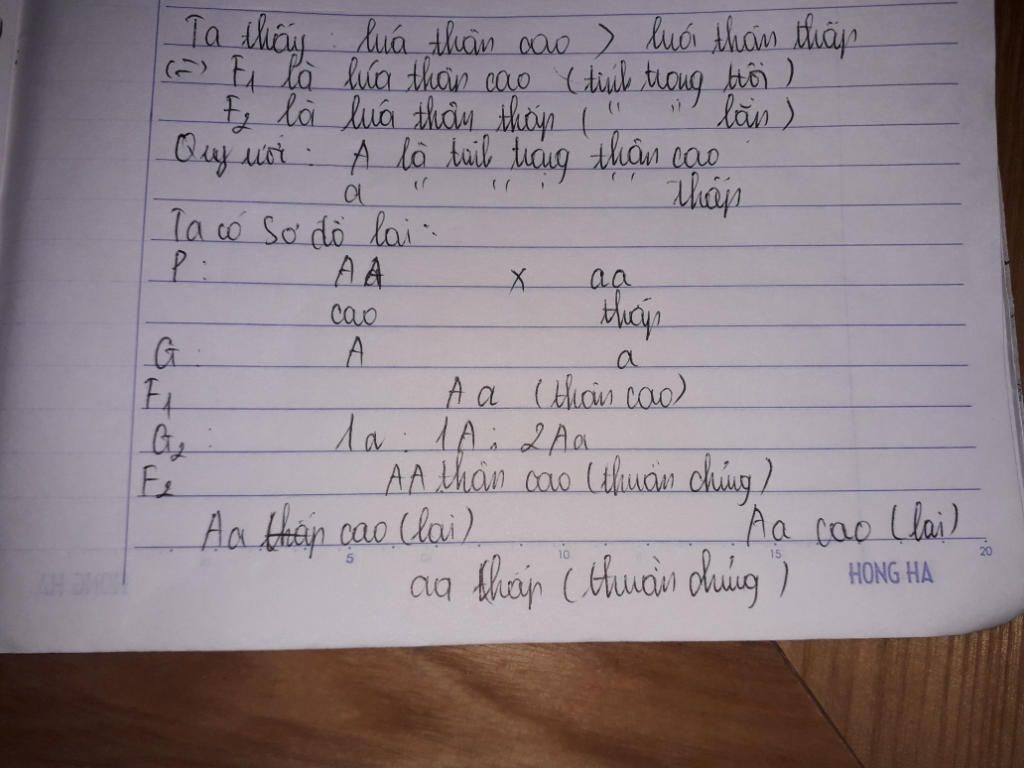 Ta thấy : luá thân cao > luói thân thấp
(=) F₁ là lúa thân cao (tính trạng trôi)
F₂ là luá thân thấp ( " " lăn)
Quy ước : A là tính trạng thân cao
a " " : " thấp
Ta có sơ đồ lai :
P : AA x aa
cao thấp
G : A a
F₁ Aa (thân cao)
G₂ : 1a : 1A : 2Aa
F₂ AA thân cao (thuần chủng)
Aa thấp cao (lai) Aa cao (lai)
5 10 15 20
aa thấp (thuần chủng) HONG HA
HONG HA